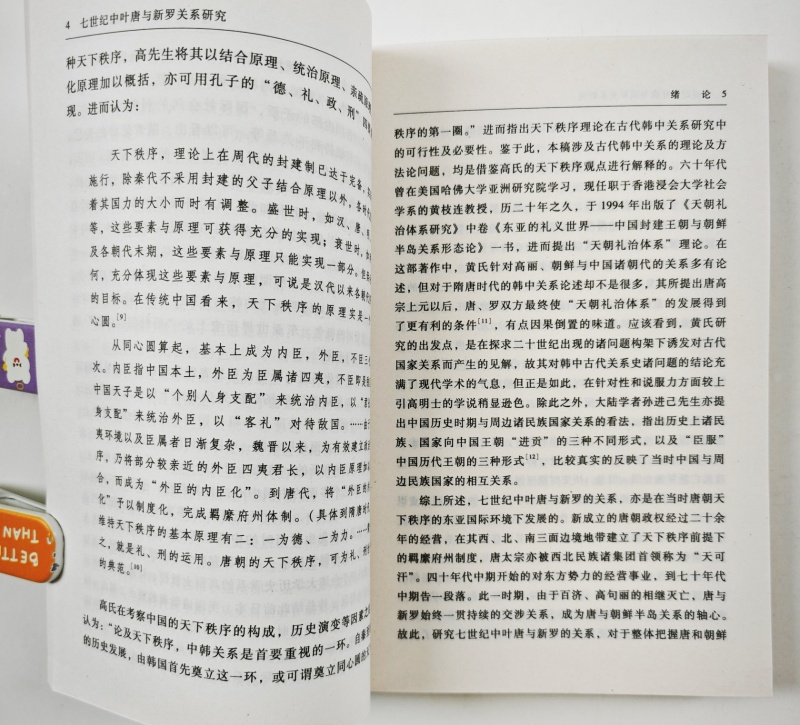 4 七世纪中叶唐与新罗关系研究
种天下秩序，高先生将其以结合原理、统治原理、亲疏
化原理加以概括，亦可用孔子的“德、礼、政、刑”
现。进而认为：
天下秩序，理论上在周代的封建制已达于完备，
施行，除秦代不采用封建的父子结合原理以外，各
着其国力的大小而时有调整。盛世时，如汉、唐、
等，这些要素与原理可获得充分的实现；衰世时，
及各朝代末期，这些要素与原理只能实现一部分。但
何，充分体现这些要素与原理，可说是汉代以来各朝
的目标。在传统中国看来，天下秩序的原理实是一
心圆。[9]
从同心圆算起，基本上成为内臣，外臣，不臣三
次。内臣指中国本土，外臣为臣属诸四夷，不臣即是
中国天子是以“个别人身支配”来统治内臣，以“
身支配”来统治外臣，以“客礼”对待敌国。……
夷环境以及臣属者日渐复杂，魏晋以来，为有效建立
序，乃将部分较亲近的外臣四夷君长，以内臣原理加
合，而成为“外臣的内臣化”。到唐代，将“外臣
化”予以制度化，完成羁縻府州体制。（具体到隋唐时
维持天下秩序的基本原理有二：一为德、一为力。……
之，就是礼、刑的运用。唐朝的天下秩序，可为礼、刑
的典范。[10]
高氏在考察中国的天下秩序的构成，历史演变等因素之
认为：“论及天下秩序，中韩关系是首要重视的一环。自秦
的历史发展，由韩国首先奠立这一环，或可谓奠立同心圆的
绪 论 5
秩序的第一圈。”进而指出天下秩序理论在古代韩中关系研究中
的可行性及必要性。鉴于此，本稿涉及古代韩中关系的理论及方
法论问题，均是借鉴高氏的天下秩序观点进行解释的。六十年代
曾在美国哈佛大学亚洲研究院学习，现任职于香港浸会大学社会
学系的黄枝连教授，历二十年之久，于 1994 年出版了《天朝礼
治体系研究》中卷《东亚的礼义世界——中国封建王朝与朝鲜
半岛关系形态论》一书，进而提出“天朝礼治体系”理论。在
这部著作中，黄氏针对高丽、朝鲜与中国诸朝代的关系多有论
述，但对于隋唐时代的韩中关系论述却不是很多，其所提出唐高
宗上元以后，唐、罗双方最终使“天朝礼治体系”的发展得到
了更有利的条件[11]，有点因果倒置的味道。应该看到，黄氏研
究的出发点，是在探求二十世纪出现的诸问题构架下诱发对古代
国家关系而产生的见解，故其对韩中古代关系史诸问题的结论充
满了现代学术的气息，但正是如此，在针对性和说服力方面较上
引高明士的学说稍显逊色。除此之外，大陆学者孙进己先生亦提
出中国历史时期与周边诸民族国家关系的看法，指出历史上诸民
族、国家向中国王朝“进贡”的三种不同形式，以及“臣服”
中国历代王朝的三种形式[12]，比较真实的反映了当时中国与周
边民族国家的相互关系。
综上所述，七世纪中叶唐与新罗的关系，亦是在当时唐朝天
下秩序的东亚国际环境下发展的。新成立的唐朝政权经过二十余
年的经营，在其西、北、南三面边境地带建立了天下秩序前提下
的羁縻府州制度，唐太宗亦被西北民族诸集团首领称为“天可
汗”。四十年代中期开始的对东方势力的经营事业，到七十年代
中期告一段落。此一时期，由于百济、高句丽的相继灭亡，唐与
新罗始终一贯持续的交涉关系，成为唐与朝鲜半岛关系的轴心。
故此，研究七世纪中叶唐与新罗的关系，对于整体把握唐和朝鲜
THAN